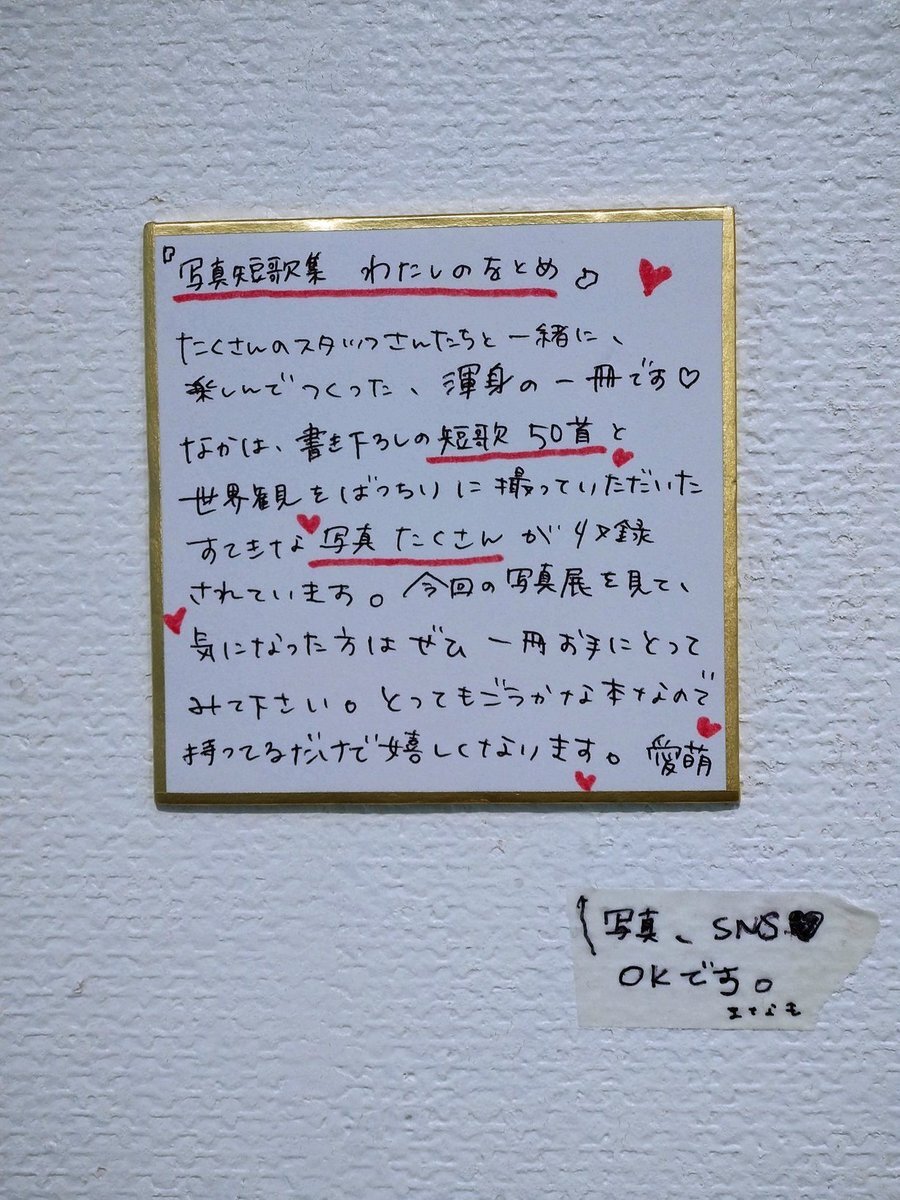 『写真短歌集 わたしのをとめ』
たくさんのスタッフさんたちと一緒に、
楽しんでつくった、渾身の一冊です♡
なかは、書き下ろしの短歌50首と
世界観をばっちりに撮っていただいた
すてきな写真たくさんが収録
されています。今回の写真展を見て、
気になった方はぜひ一冊お手にとって
みて下さい。とってもごうかな本なので
持ってるだけで嬉しくなります。愛萌
↑写真、SNS♥
OKです。